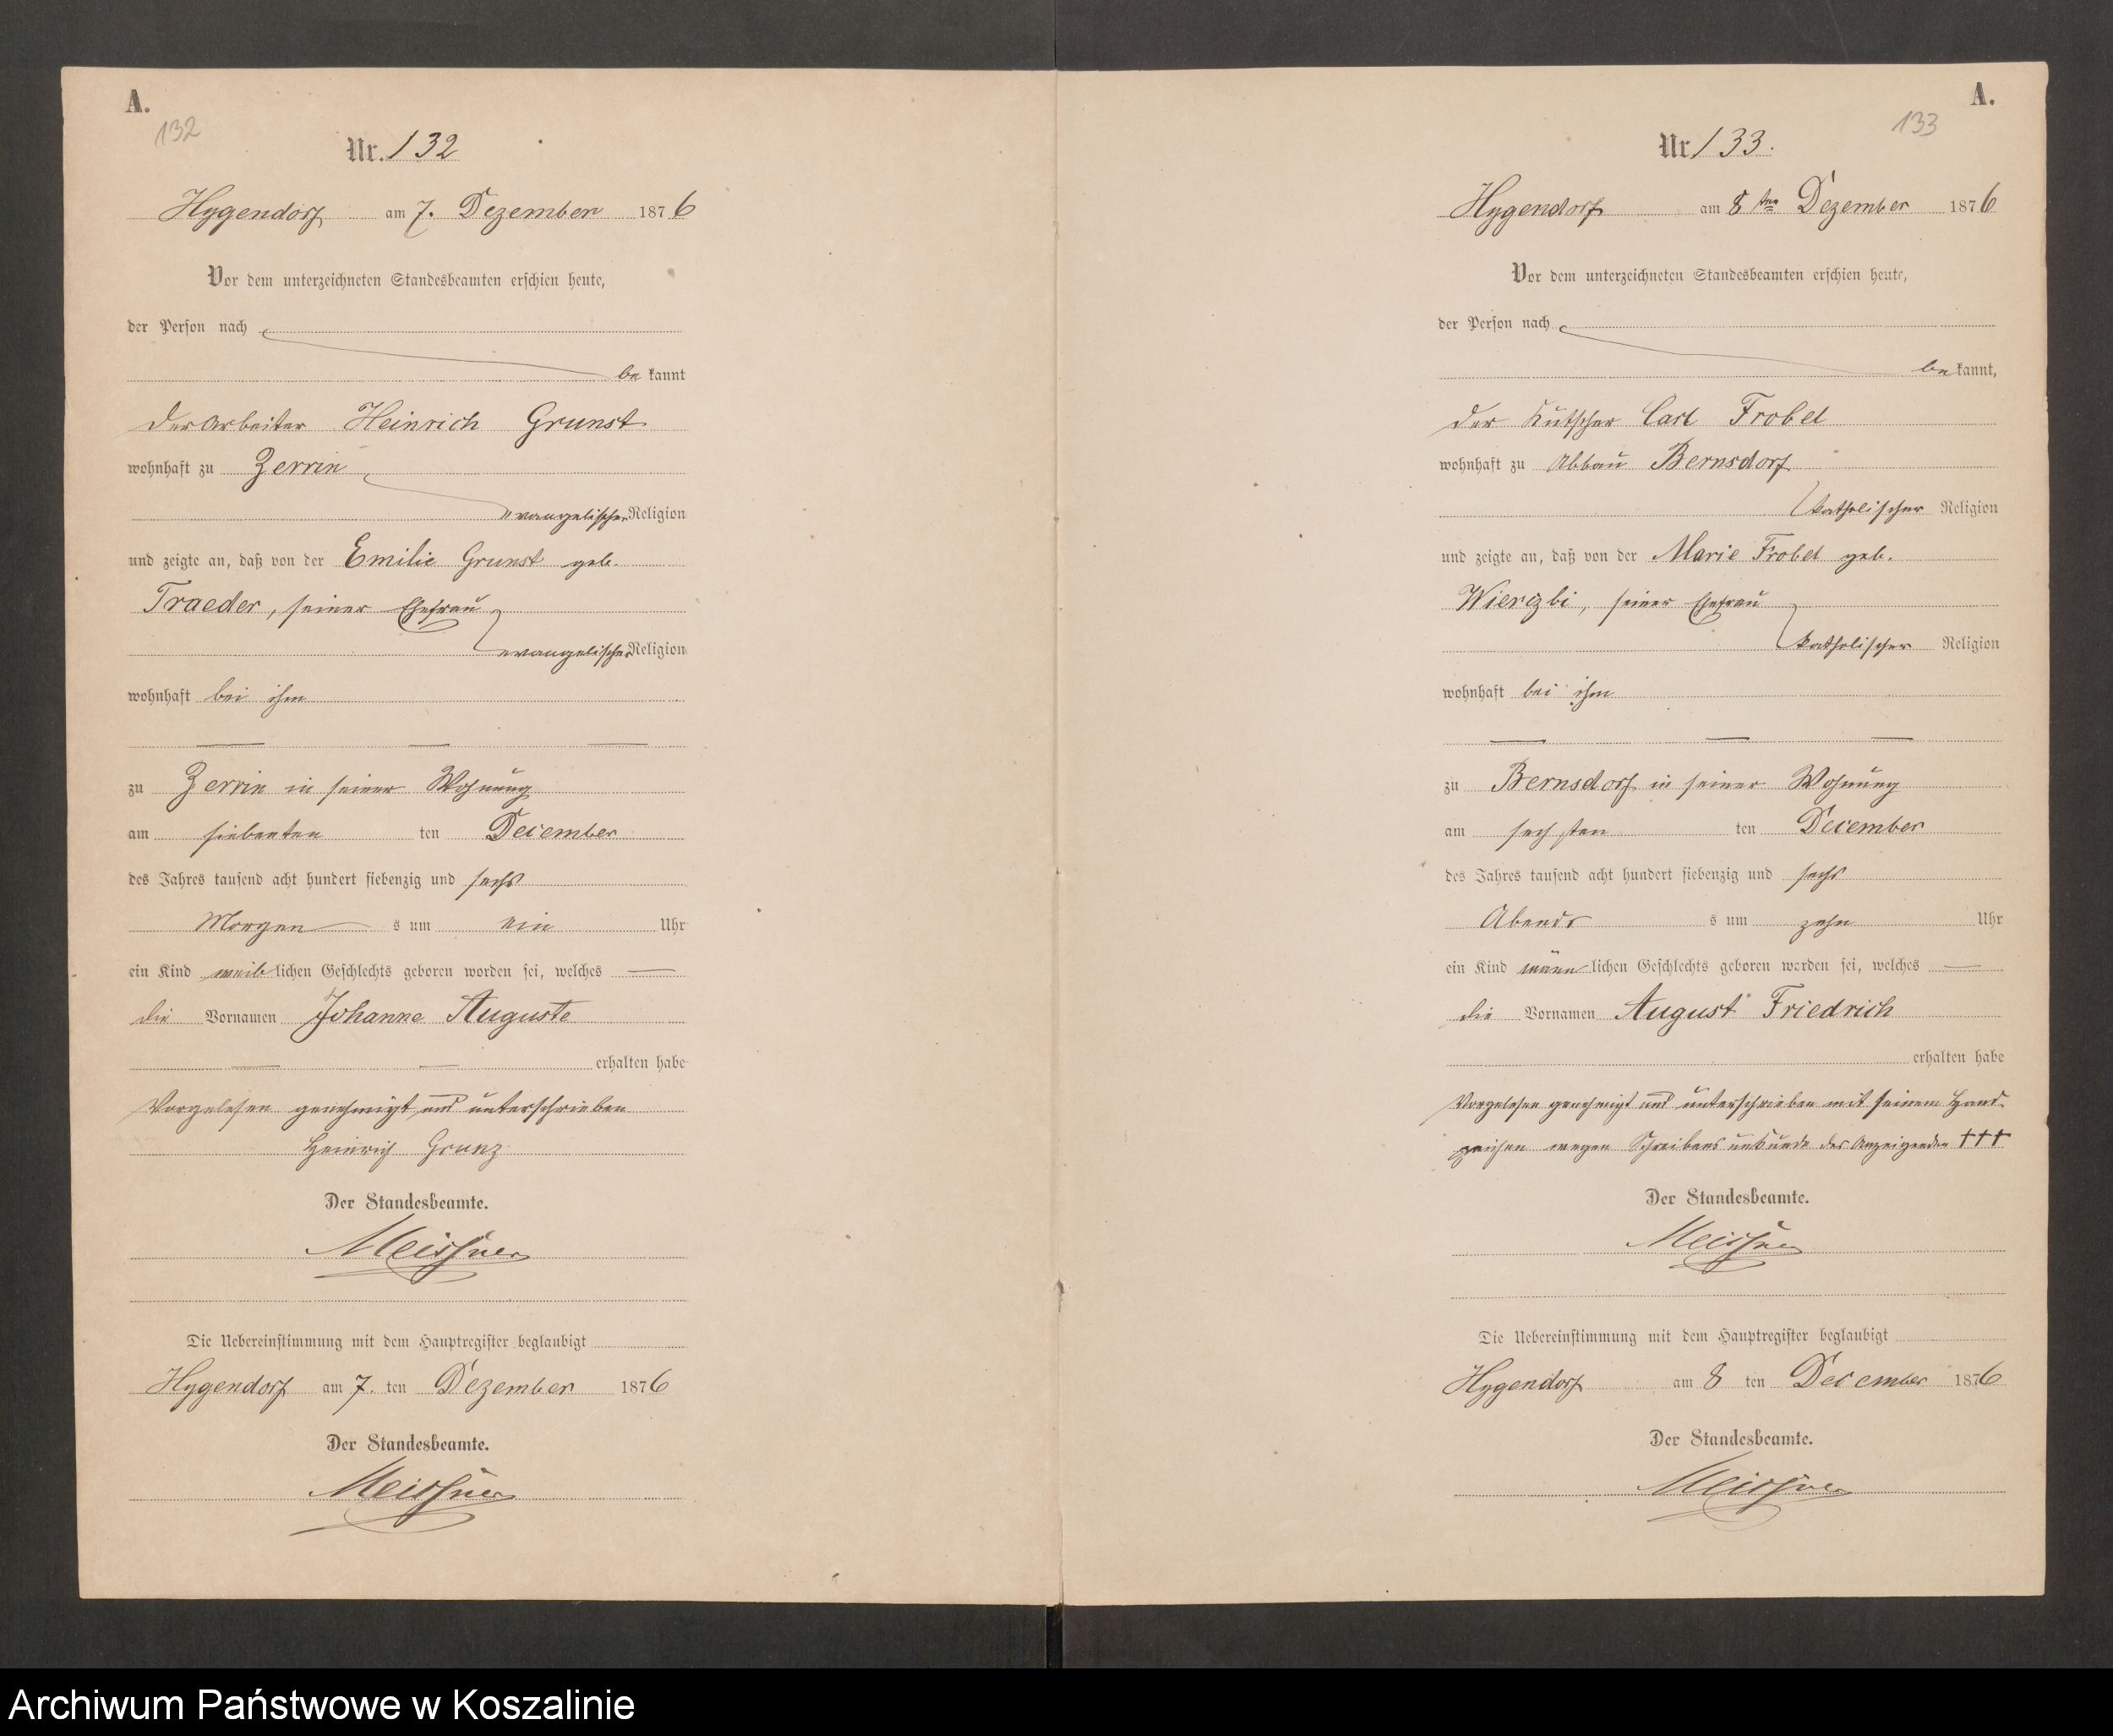 A.
132
Nr. 132
Hygendorf am 7. Dezember 1876
Vor dem unterzeichneten Standesbeamten erschien heute,
der Person nach
be kannt
der Arbeiter Heinrich Grunst
wohnhaft zu Zerrin
evangelischer Religion
und zeigte an, daß von der Emilie Grunst geb.
Traeder, seiner Ehefrau
evangelischer Religion
wohnhaft bei ihm
zu Zerrin in seiner Wohnung
am siebenten ten December
des Jahres tausend acht hundert siebenzig und sechs
Morgen s um ein Uhr
ein Kind weiblichen Geschlechts geboren worden sei, welches
die Vornamen Johanne Auguste
erhalten habe
Vorgelesen genehmigt und unterschrieben
Heinrich Grunz
Der Standesbeamte.
Meissner
Die Uebereinstimmung mit dem Hauptregister beglaubigt
Hygendorf am 7. ten Dezember 1876
Der Standesbeamte.
Meissner
A.
133
Nr 133.
Hygendorf am 8ten Dezember 1876
Vor dem unterzeichneten Standesbeamten erschien heute,
der Person nach
be kannt,
der Kutscher Carl Frobel
wohnhaft zu Abbau Bernsdorf
katholischer Religion
und zeigte an, daß von der Marie Frobel geb.
Wierczbi, seiner Ehefrau
katholischer Religion
wohnhaft bei ihm
zu Bernsdorf in seiner Wohnung
am sechsten ten December
des Jahres tausend acht hundert siebenzig und sechs
Abends s um zehn Uhr
ein Kind männlichen Geschlechts geboren worden sei, welches
die Vornamen August Friedrich
erhalten habe
Vorgelesen genehmigt und unterschrieben mit seinem Hand-
zeichen wegen Schreibens unkunde des Anzeigenden +++
Der Standesbeamte.
Meissner
Die Uebereinstimmung mit dem Hauptregister beglaubigt
Hygendorf am 8 ten December 1876
Der Standesbeamte.
Meissner
Archiwum Państwowe w Koszalinie